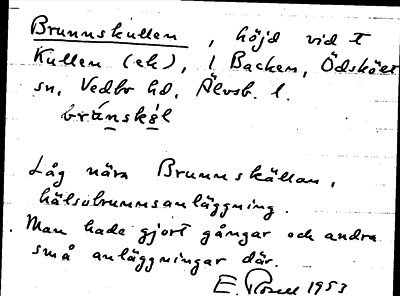 Brunnskullen, höjd vid t
Kullen (ek), 1 Backen, Ödskölt
sn, Vedbo hd, Älvsb. l.
Låg nära Brunnskällan,
hälsobrunnsanläggning.
Man hade gjort gångar och andra
små anläggningar där.
E. Rosell 1953